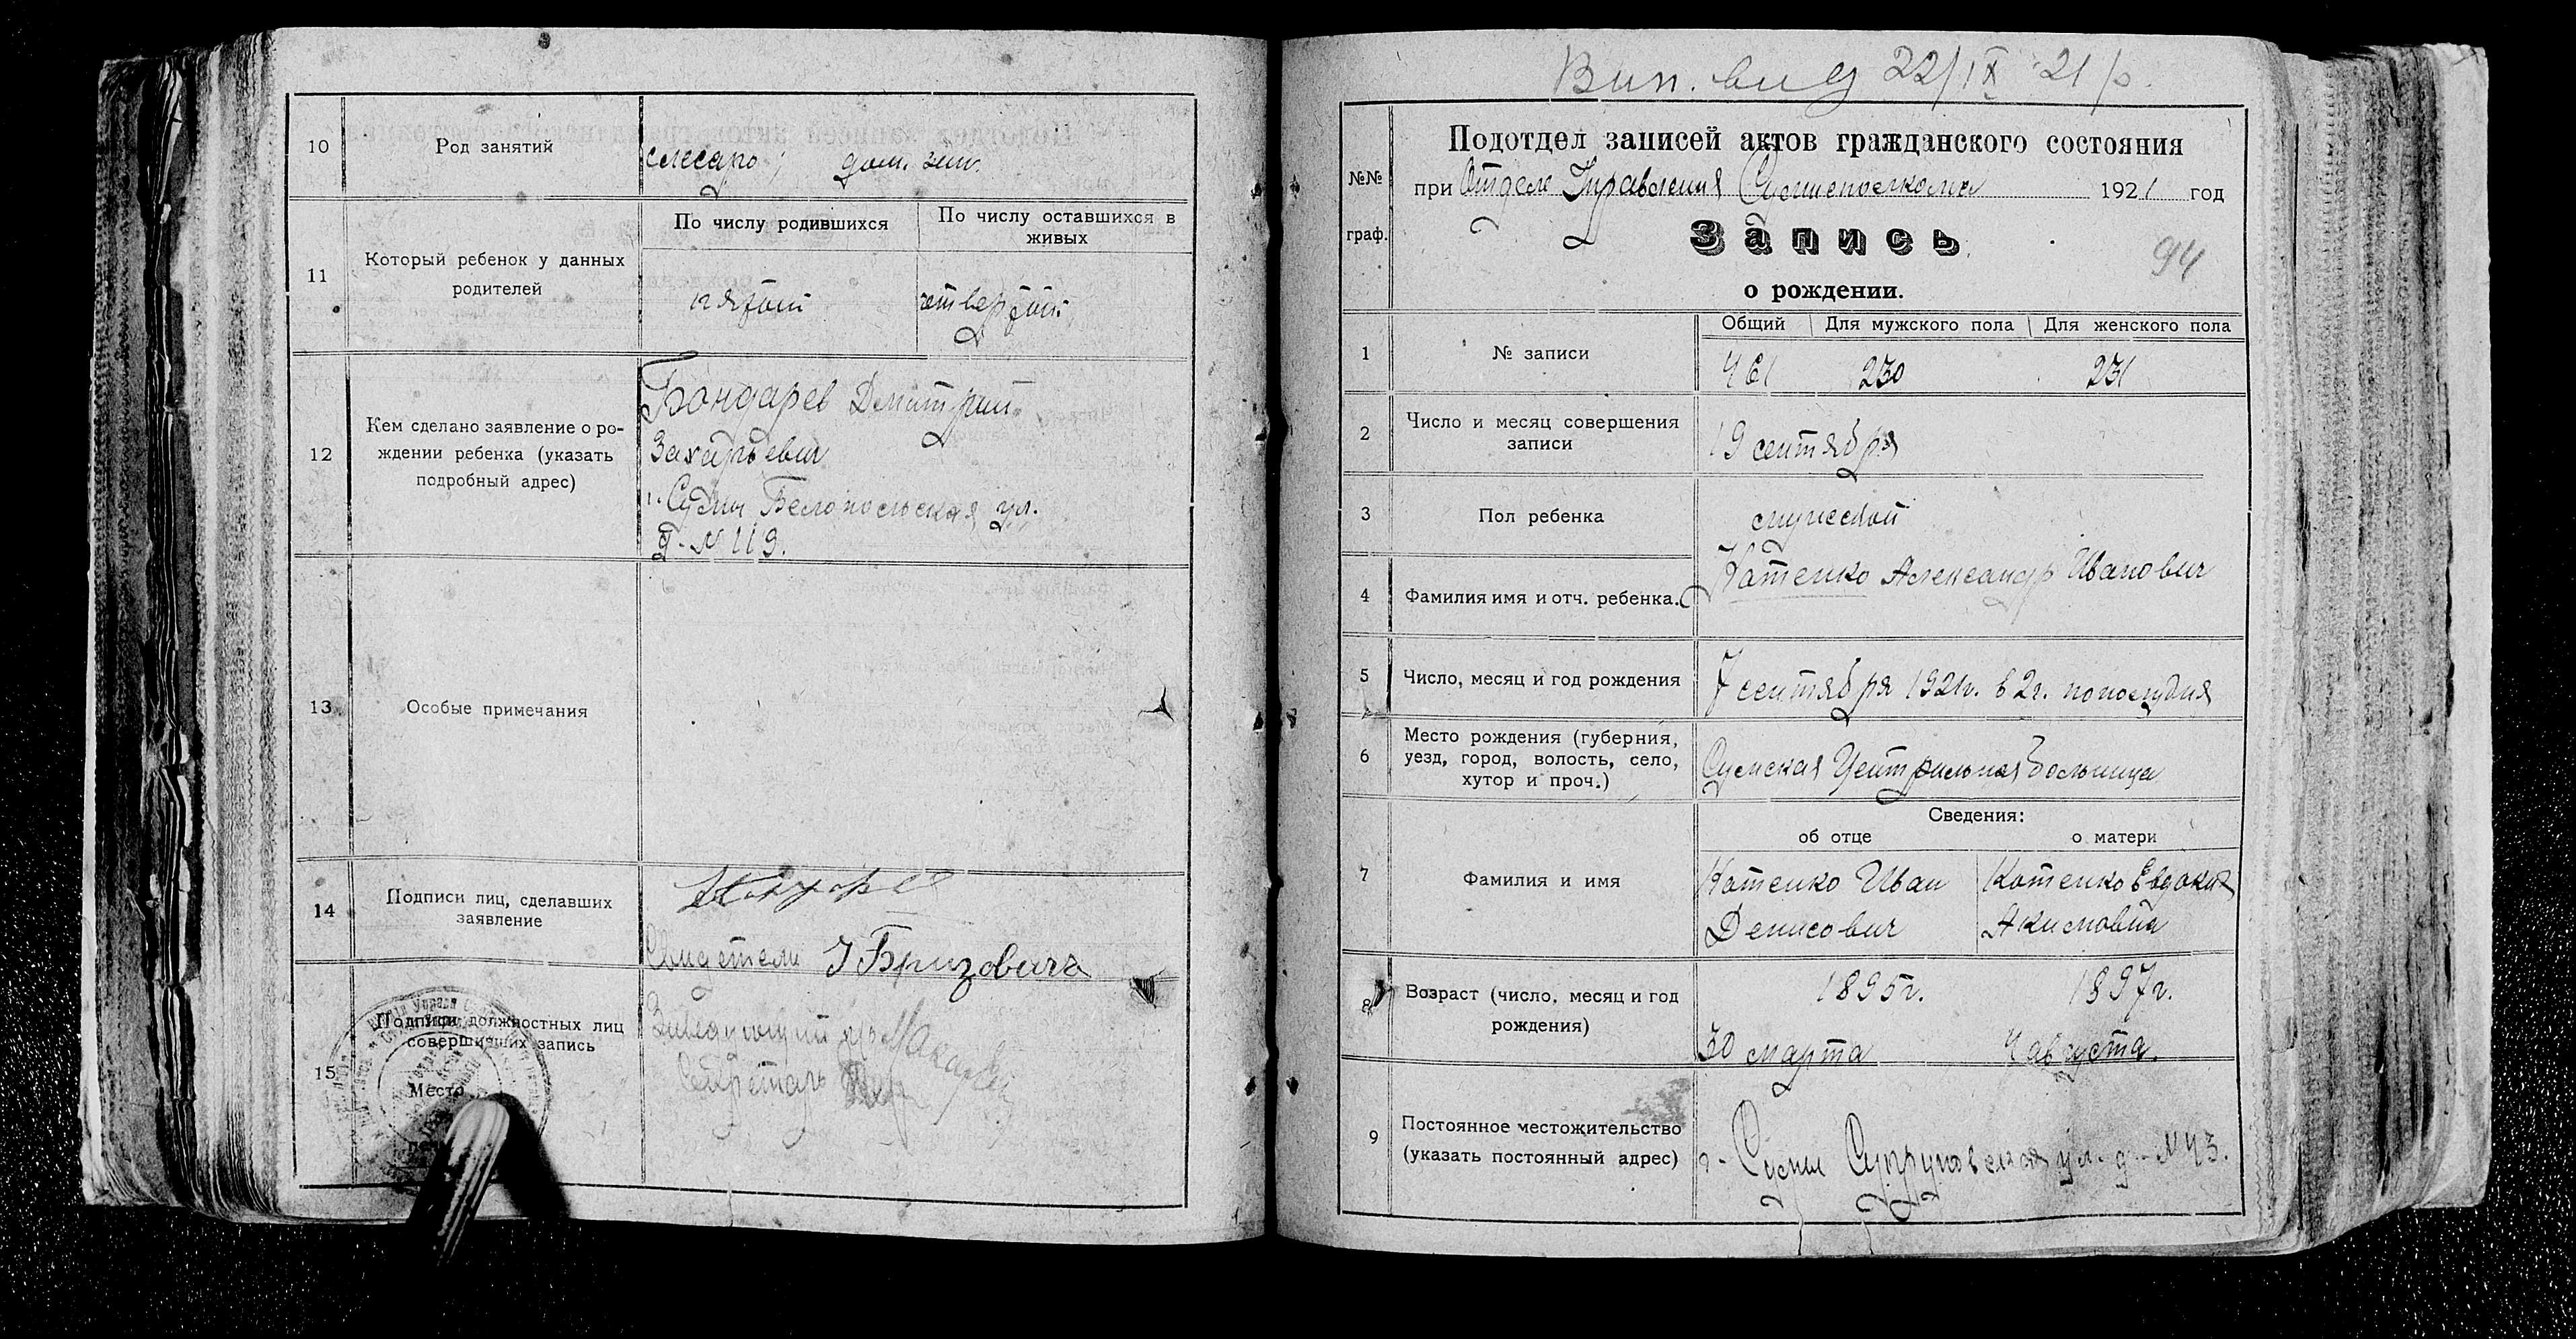 10
Род занятий
слесарь; дом. зан.
11
Который ребенок у данных
родителей
По числу родившихся
По числу оставшихся в
живых
пятый
четвертый
12
Кем сделано заявление о ро-
ждении ребенка (указать
подробный адрес)
Бондарев Дмитрий
Захарьевич
г. Сумы Белопольская ул.
д. № 119.
13
Особые примечания
14
Подписи лиц, сделавших
заявление
Свидетели
15
Подписи должностных лиц
совершивших запись
Место
Заведующий
Секретарь
Вип. вид 22/IX 21 р.
№№
граф.
Подотдел записей актов гражданского состояния
при Отделе Управления 1921 год
Запись
о рождении.
94
1
№ записи
Общий Для мужского пола Для женского пола
461 230 231
2
Число и месяц совершения
записи
19 сентября
3
Пол ребенка
мужеской
4
Фамилия имя и отч. ребенка.
Котенко Александр Иванович
5
Число, месяц и год рождения
7 сентября 1921г. в 2ч. пополудня
6
Место рождения (губерния,
уезд, город, волость, село,
хутор и проч.)
Сумская Центральная больница
Сведения:
об отце
о матери
7
Фамилия и имя
Котенко Иван
Денисович
Котенко Евдокия
Акимовна
8
Возраст (число, месяц и год
рождения)
1895г.
30 марта
1897г.
4 августа.
9
Постоянное местожительство
(указать постоянный адрес)
г. Сумы Супруновская ул. д. № 43.